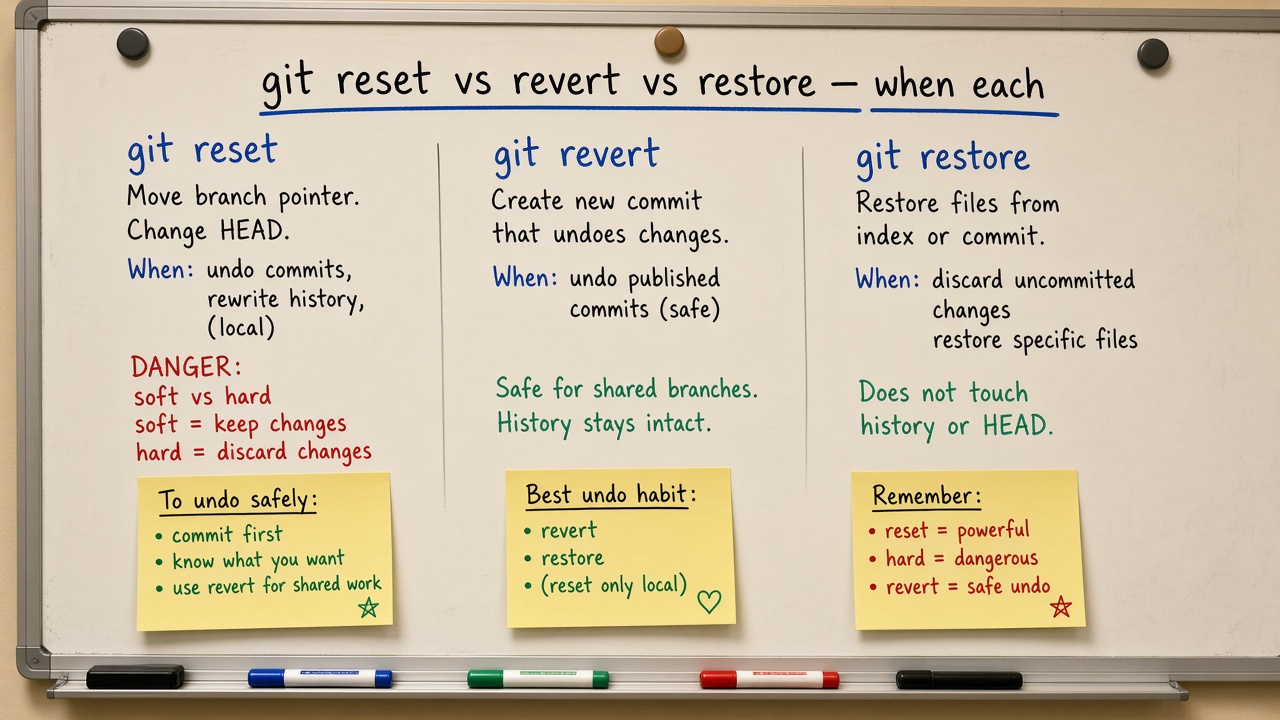 git reset vs revert vs restore — when each
git reset
Move branch pointer.
Change HEAD.
When: undo commits,
rewrite history,
(local)
DANGER:
soft vs hard
soft = keep changes
hard = discard changes
To undo safely:
• commit first
• know what you want
• use revert for shared work
git revert
Create new commit
that undoes changes.
When: undo published
commits (safe)
Safe for shared branches.
History stays intact.
Best undo habit:
• revert
• restore
• (reset only local)
git restore
Restore files from
index or commit.
When: discard uncommitted
changes
restore specific files
Does not touch
history or HEAD.
Remember:
• reset = powerful
• hard = dangerous
• revert = safe undo